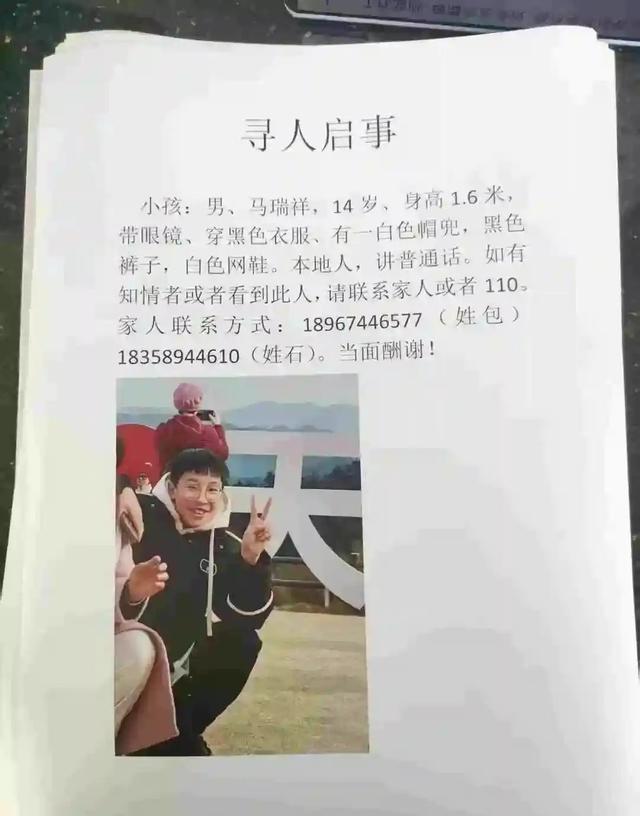 寻人启事
小孩：男、马瑞祥，14岁、身高1.6米，
带眼镜、穿黑色衣服、有一白色帽兜，黑色
裤子，白色网鞋。本地人，讲普通话。如有
知情者或者看到此人，请联系家人或者110。
家人联系方式：18967446577（姓包）
18358944610（姓石）。当面酬谢！